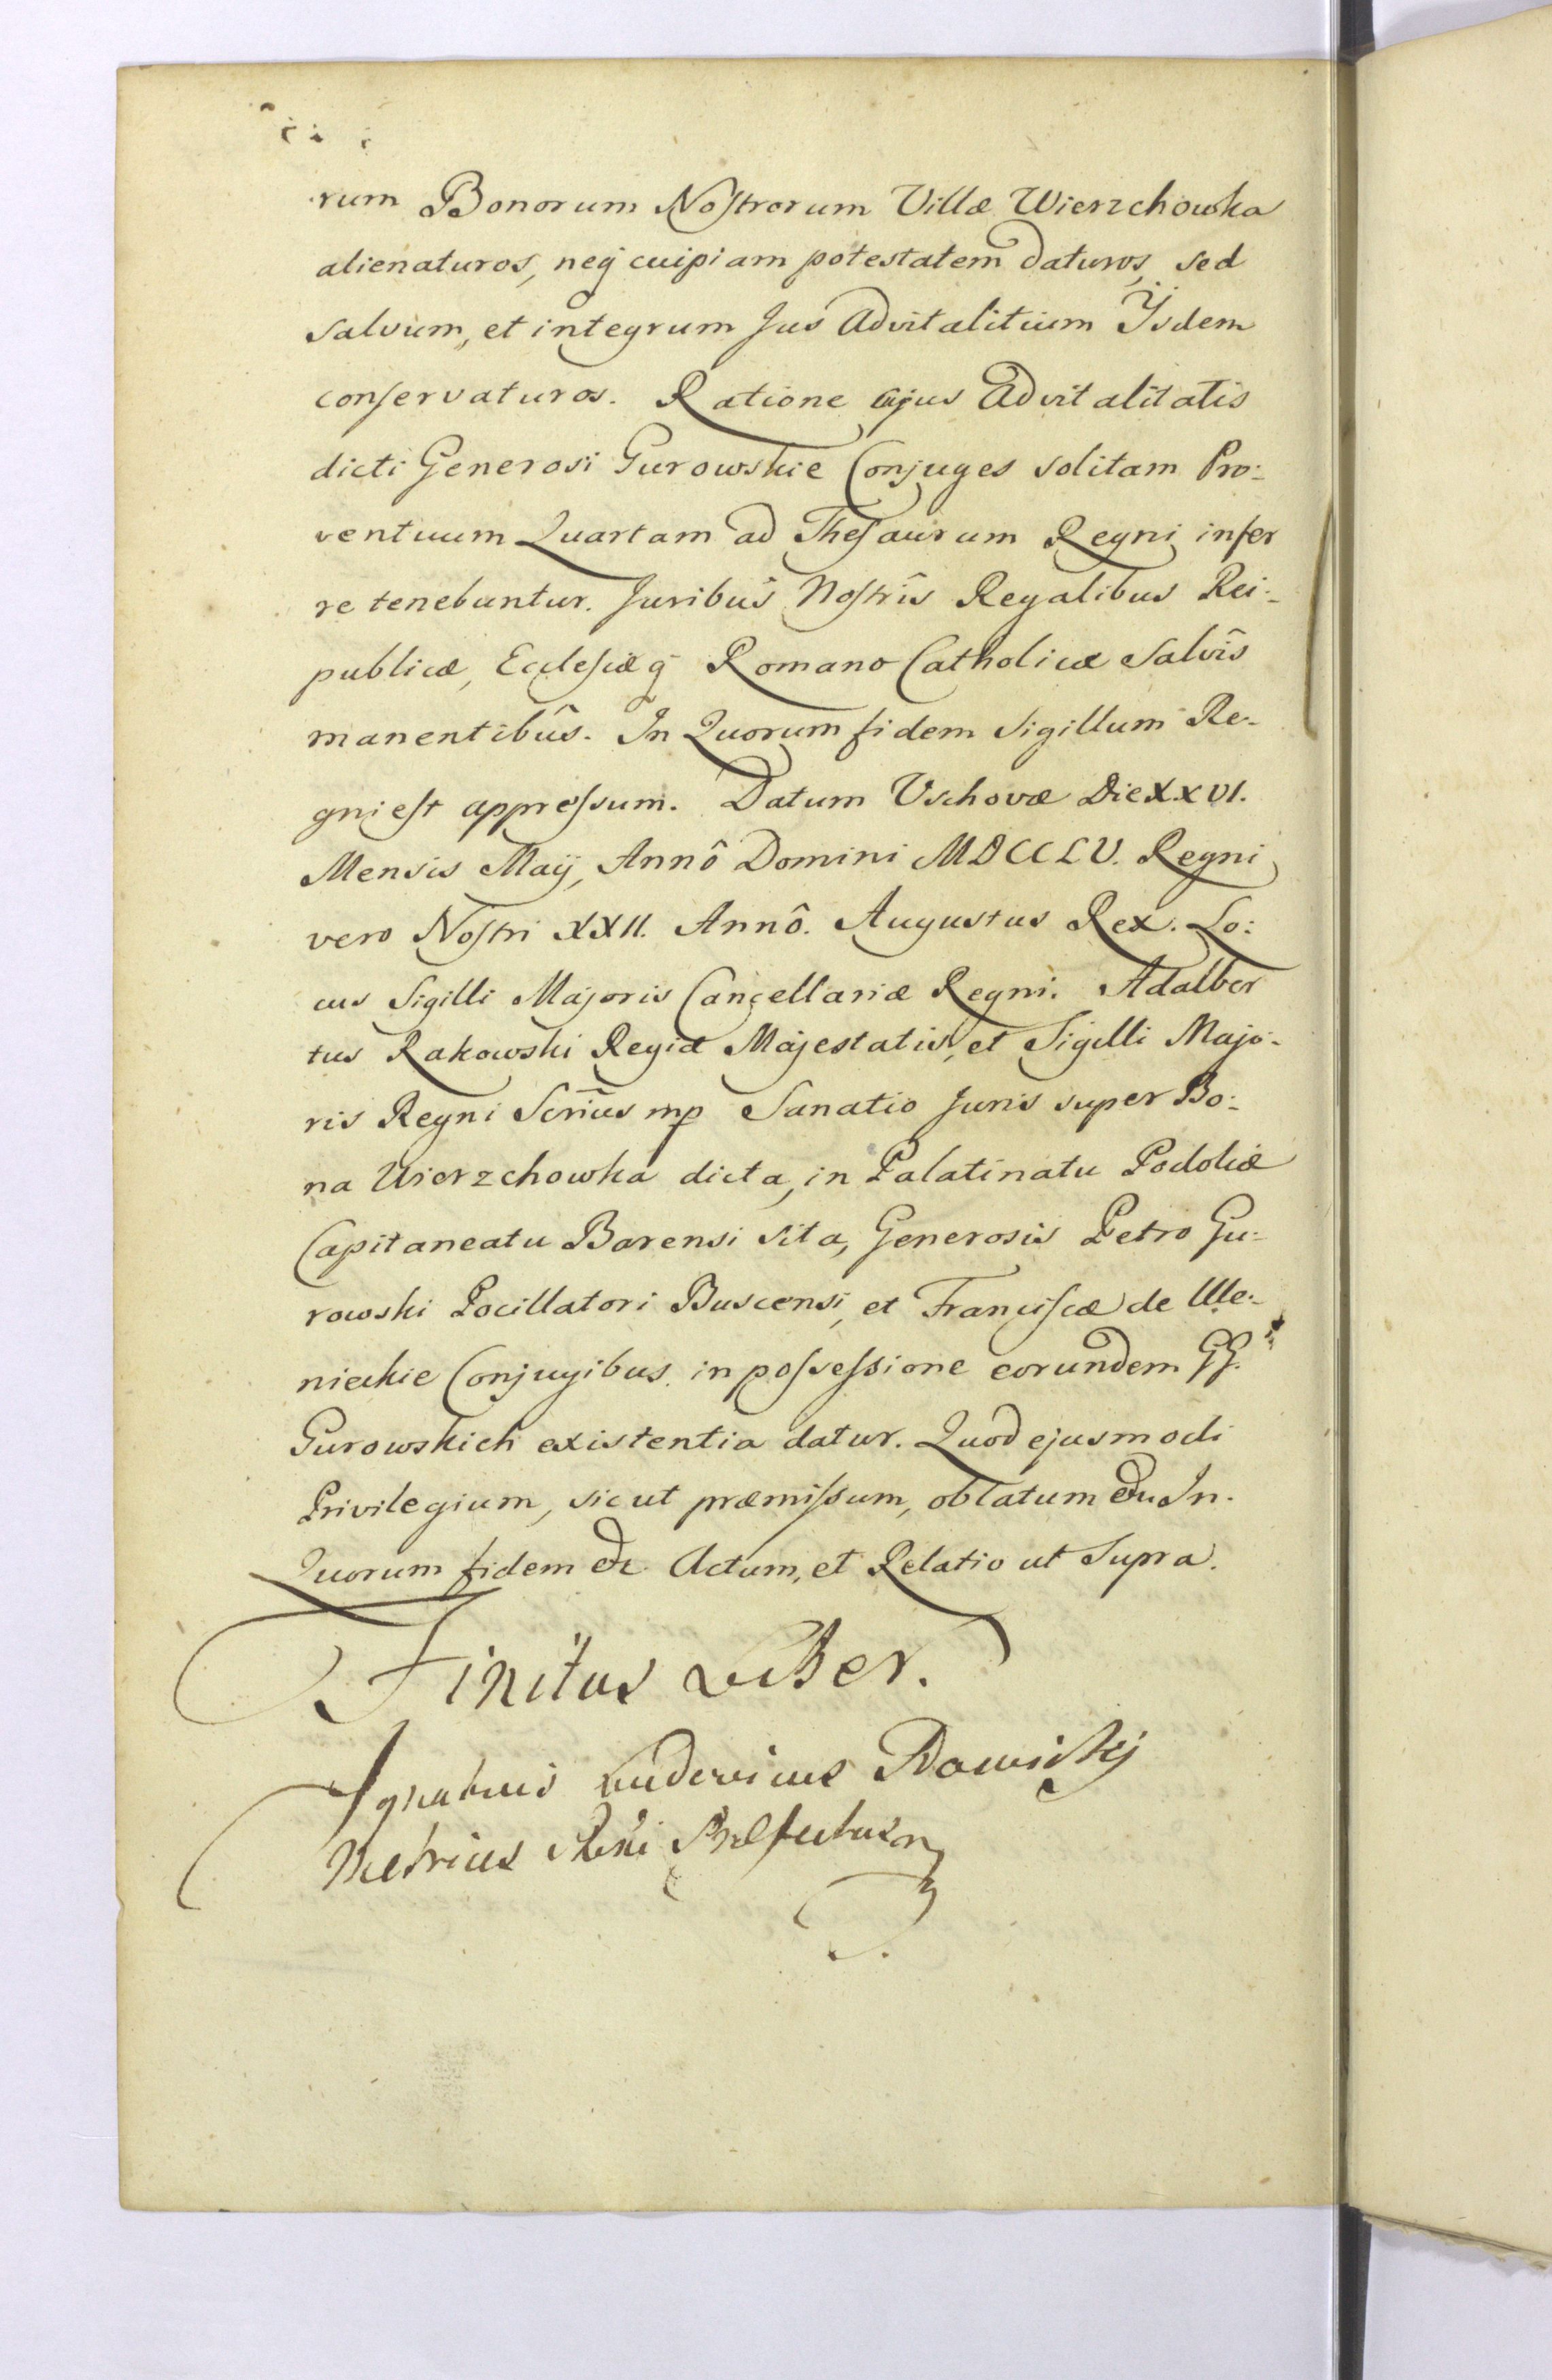 rum Bonorum Nostrorum Villæ Wierzchowka
alienaturos, neq̃ cuipiam potestatem daturos, sed
Salvum, et integrum Jus Advitalitium Ÿsdem
conservaturos. Ratione cujus Advitalitatis
dicti Generosi Gurowskie Conjuges solitam Pro:
ventuum Quartam ad Thesaurum Regni infer
re tenebuntur. Juribus Nostrîs Regalibus Rei:
publicæ, Ecclesiæq̃ Romano Catholicæ Salvîs
manentibûs. In Quorum fidem Sigillum Re-
gni est appressum. Datum Vschovæ Die XXVI.
Mensis Maÿ, Annô Domini MDCCLV. Regni
vero Nostri XXII. Annô. Augustus Rex. Lo:
cus Sigilli Majoris Cancellariæ Regni. Adalber
tus Rakowski Regiæ Majestatis, et Sigilli Majo-
ris Regni Scrîus mp Sanatio Juris super Bo:
na Wierzchowka dicta, in Palatinatu Podoliæ
Capitaneatu Barensi sita, Generosis Petro Gu:
rowski Pocillatori Buscensi, et Franciscæ de
nieckie Conjugibus in possessione eorundem GG.
Gurowskich existentia datur. Quod ejusmodi
Privilegium, sicut præmissum, oblatum &c. In.
Quorum fidem &c. Actum, et Relatio ut Supra.
Finitus Liber.
Ignatius Ludovicus
Metrices Regni Præfectus mp